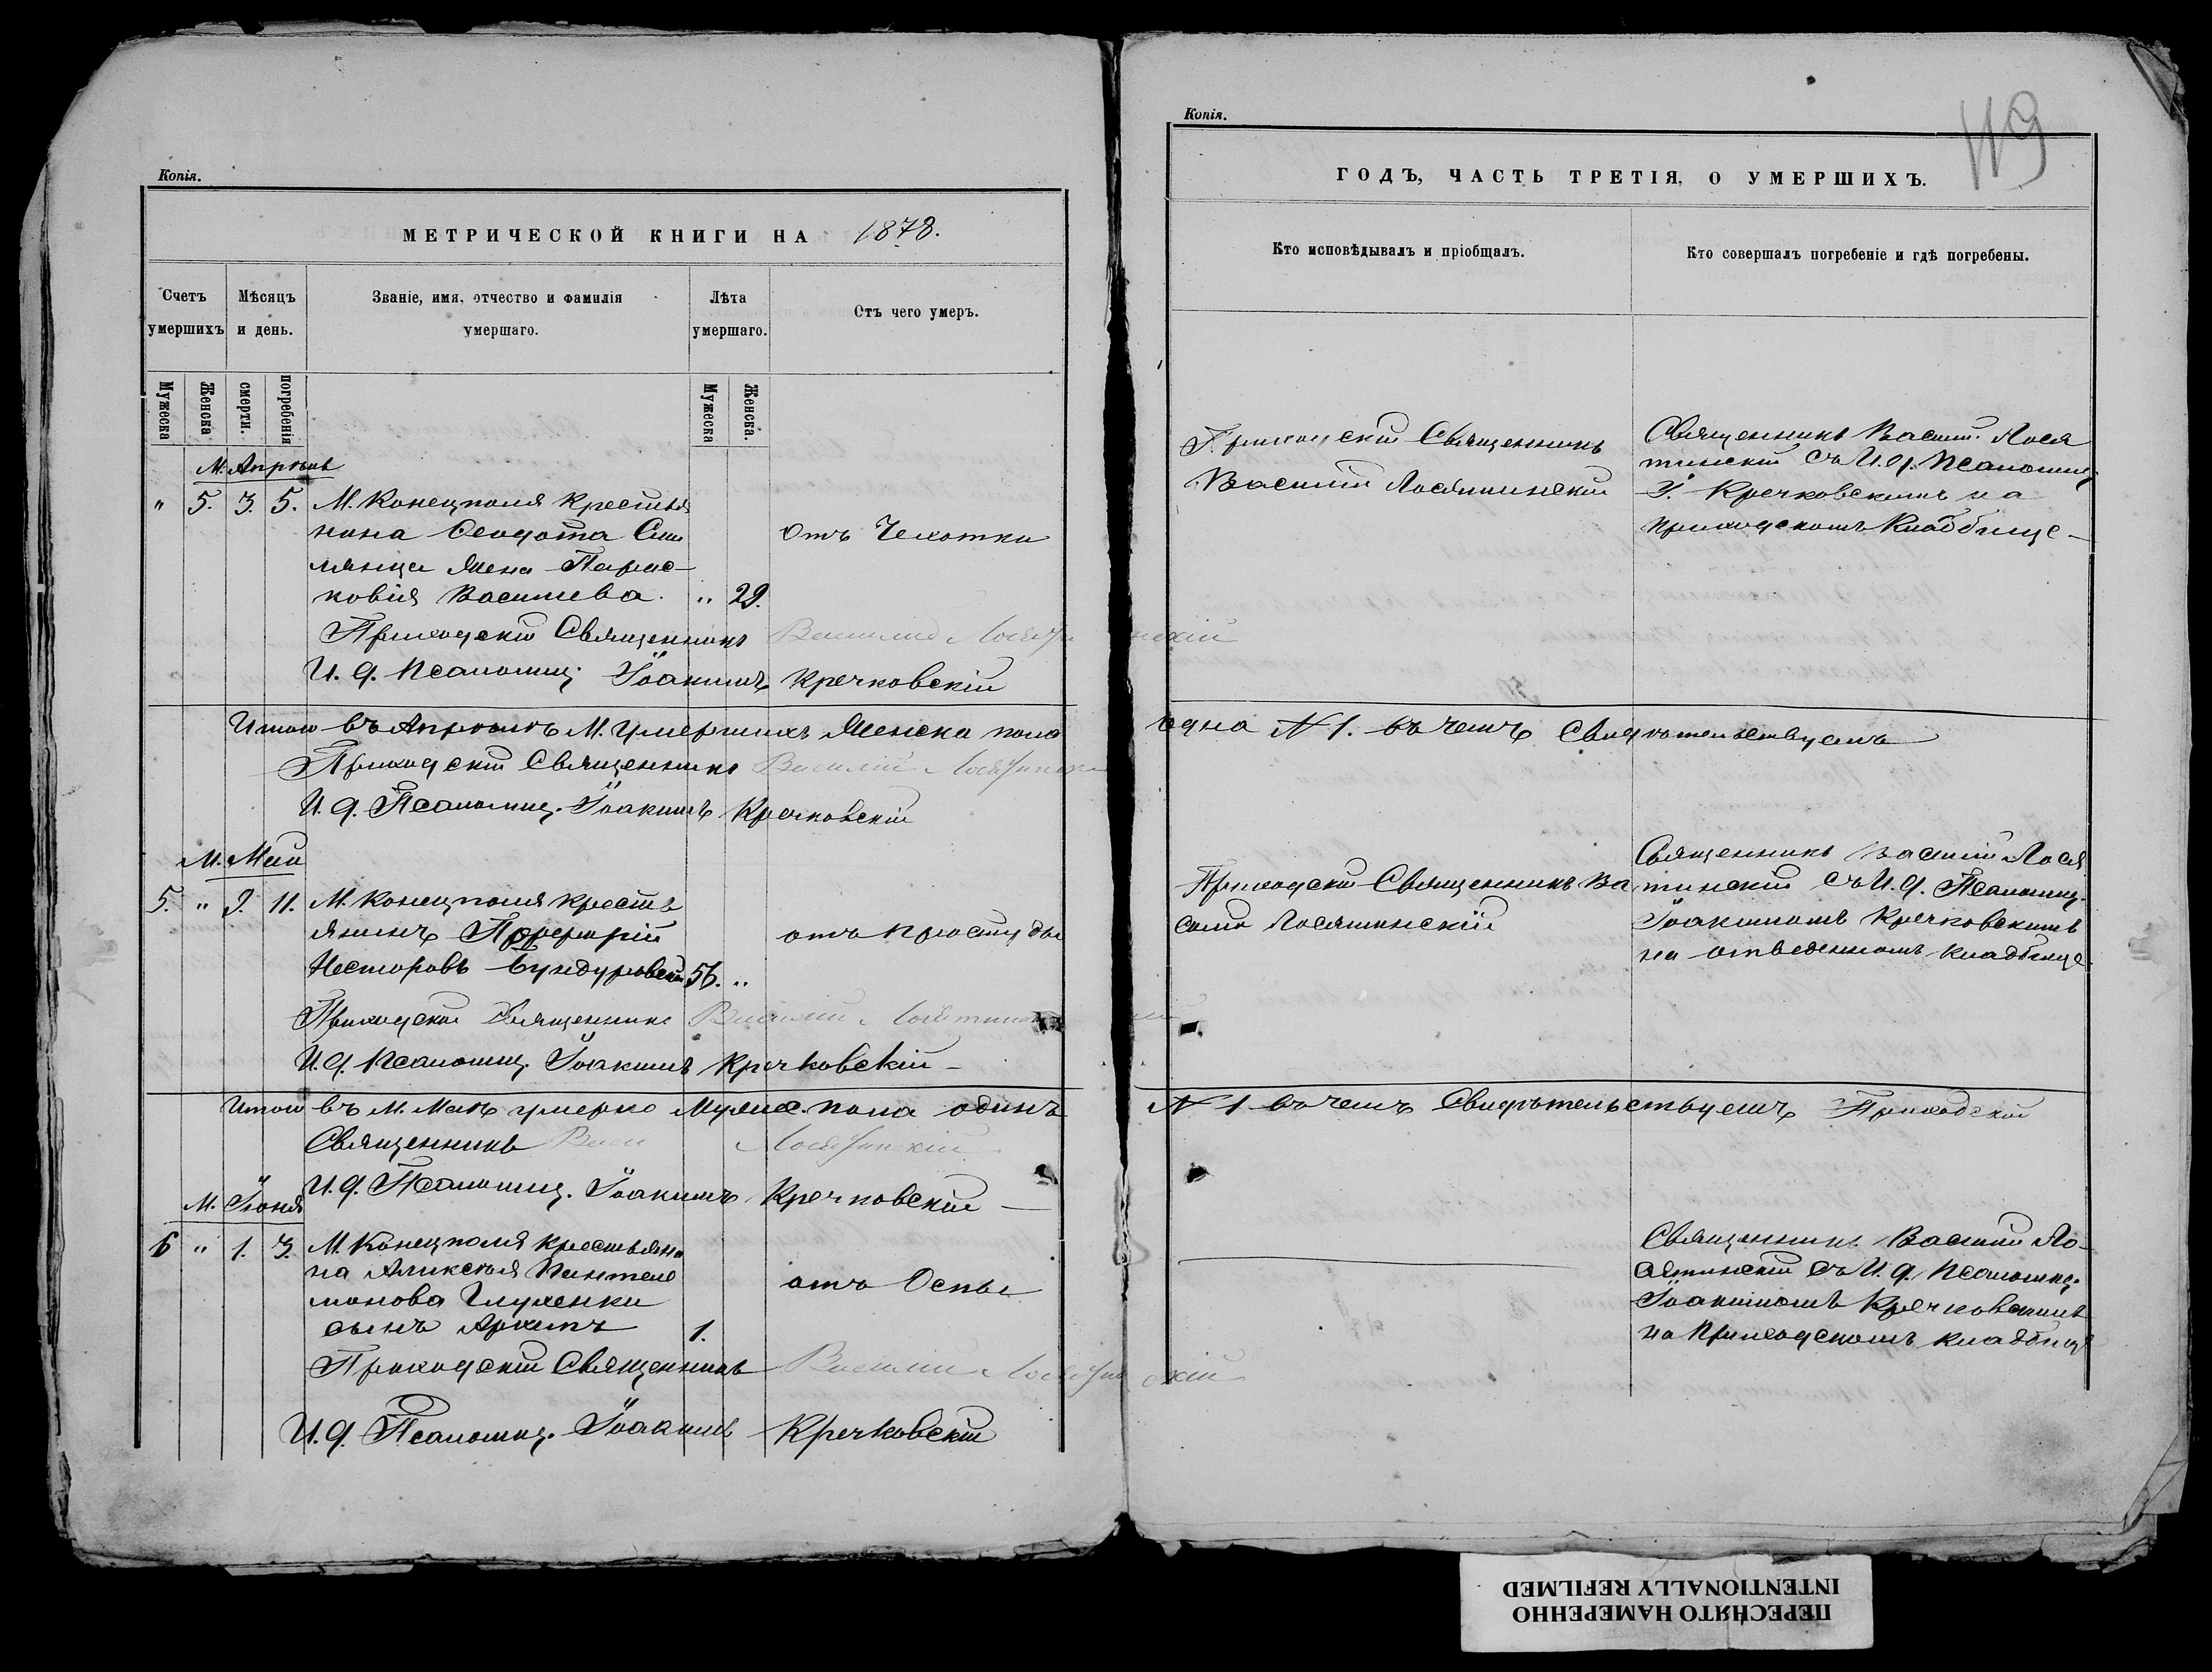 Копія.
МЕТРИЧЕСКОЙ КНИГИ НА 1878.
Счетъ умершихъ
Мѣсяцъ и день.
Званіе, имя, отчество и фамилія умершаго.
Лѣта умершаго.
Отъ чего умеръ.
Мужеска
Женска
смерти.
погребенія
Мужеска
Женска.
М. Апрѣль
" 5. 3. 5. М. Конецполя крестья
нина Ѳеодота
жена Парас-
ковія Васильева. " 29.
отъ Чехотки
Приходскій Священникъ Василій Лосятинскій
И. д. Псаломщ. Іоакимъ Кречковскій
Итого въ Апрѣлѣ М. умершихъ Женска пола
Приходскій Священникъ Василій Лосятинскій
И. д. Псаломщ. Іоакимъ Кречковскій
М. Май
5. " 9. 11. М. Конецполя кресть
янинъ Порфирій
Несторовъ 56. "
отъ простуды
Приходскій Священникъ Василій Лосятинскій
И. д. Псаломщ. Іоакимъ Кречковскій
Итого въ М. Маѣ умерло Мужес. пола одинъ
Священникъ Васи Лосятинскій
И. д. Псаломщ. Іоакимъ Кречковскій
М. Іюня
6 " 1. 3. М. Конецполя крестьяни
на Алексѣя Пантеле
монова Глуженки
сынъ Архипъ 1.
отъ Оспы
Приходскій Священникъ Василій Лосятинскій
И. д. Псаломщ. Іоакимъ Кречковскій
Копія.
119
ГОДЪ, ЧАСТЬ ТРЕТІЯ, О УМЕРШИХЪ.
Кто исповѣдывалъ и пріобщалъ.
Кто совершалъ погребеніе и гдѣ погребены.
Приходскій Священникъ
Василій Лосятинскій
Священникъ Васил. Лося
тинскій съ И. д. Псаломщ.
І. Кречковскимъ на
приходскомъ Кладбище
одна № 1. въ чемъ Свидѣтельствуемъ
Приходскій Священникъ Ва
силій Лосятинскій
Священникъ Василій Лося
тинскій съ И. д. Псаломщ.
Іоакимомъ Кречковскимъ
на отведенномъ кладбище
№ 1 въ чемъ Свидѣтельствуемъ Приходскій
Священникъ Василій Ло-
сятинскій съ И. д. Псаломщ.
Іоакимомъ Кречковскимъ
на приходскомъ кладбище
ПЕРЕСНЯТО НАМЕРЕННО
INTENTIONALLY REFILMED